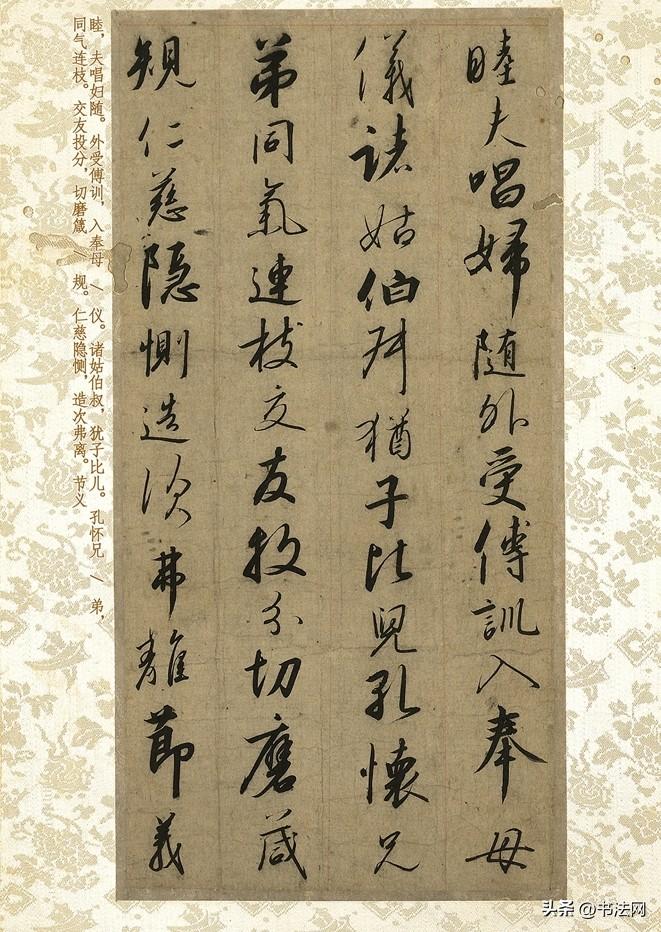 睦夫唱婦随外受傅訓入奉母
儀諸姑伯叔猶子比兒孔懷兄
弟同氣連枝交友投分切磨箴
規仁慈隱惻造次弗離節義
睦，夫唱妇随。外受傅训，入奉母 / 仪。诸姑伯叔，犹子比儿。孔怀兄 / 弟，
同气连枝。交友投分，切磨箴 / 规。仁慈隐恻，造次弗离。节义
头条 @书法网